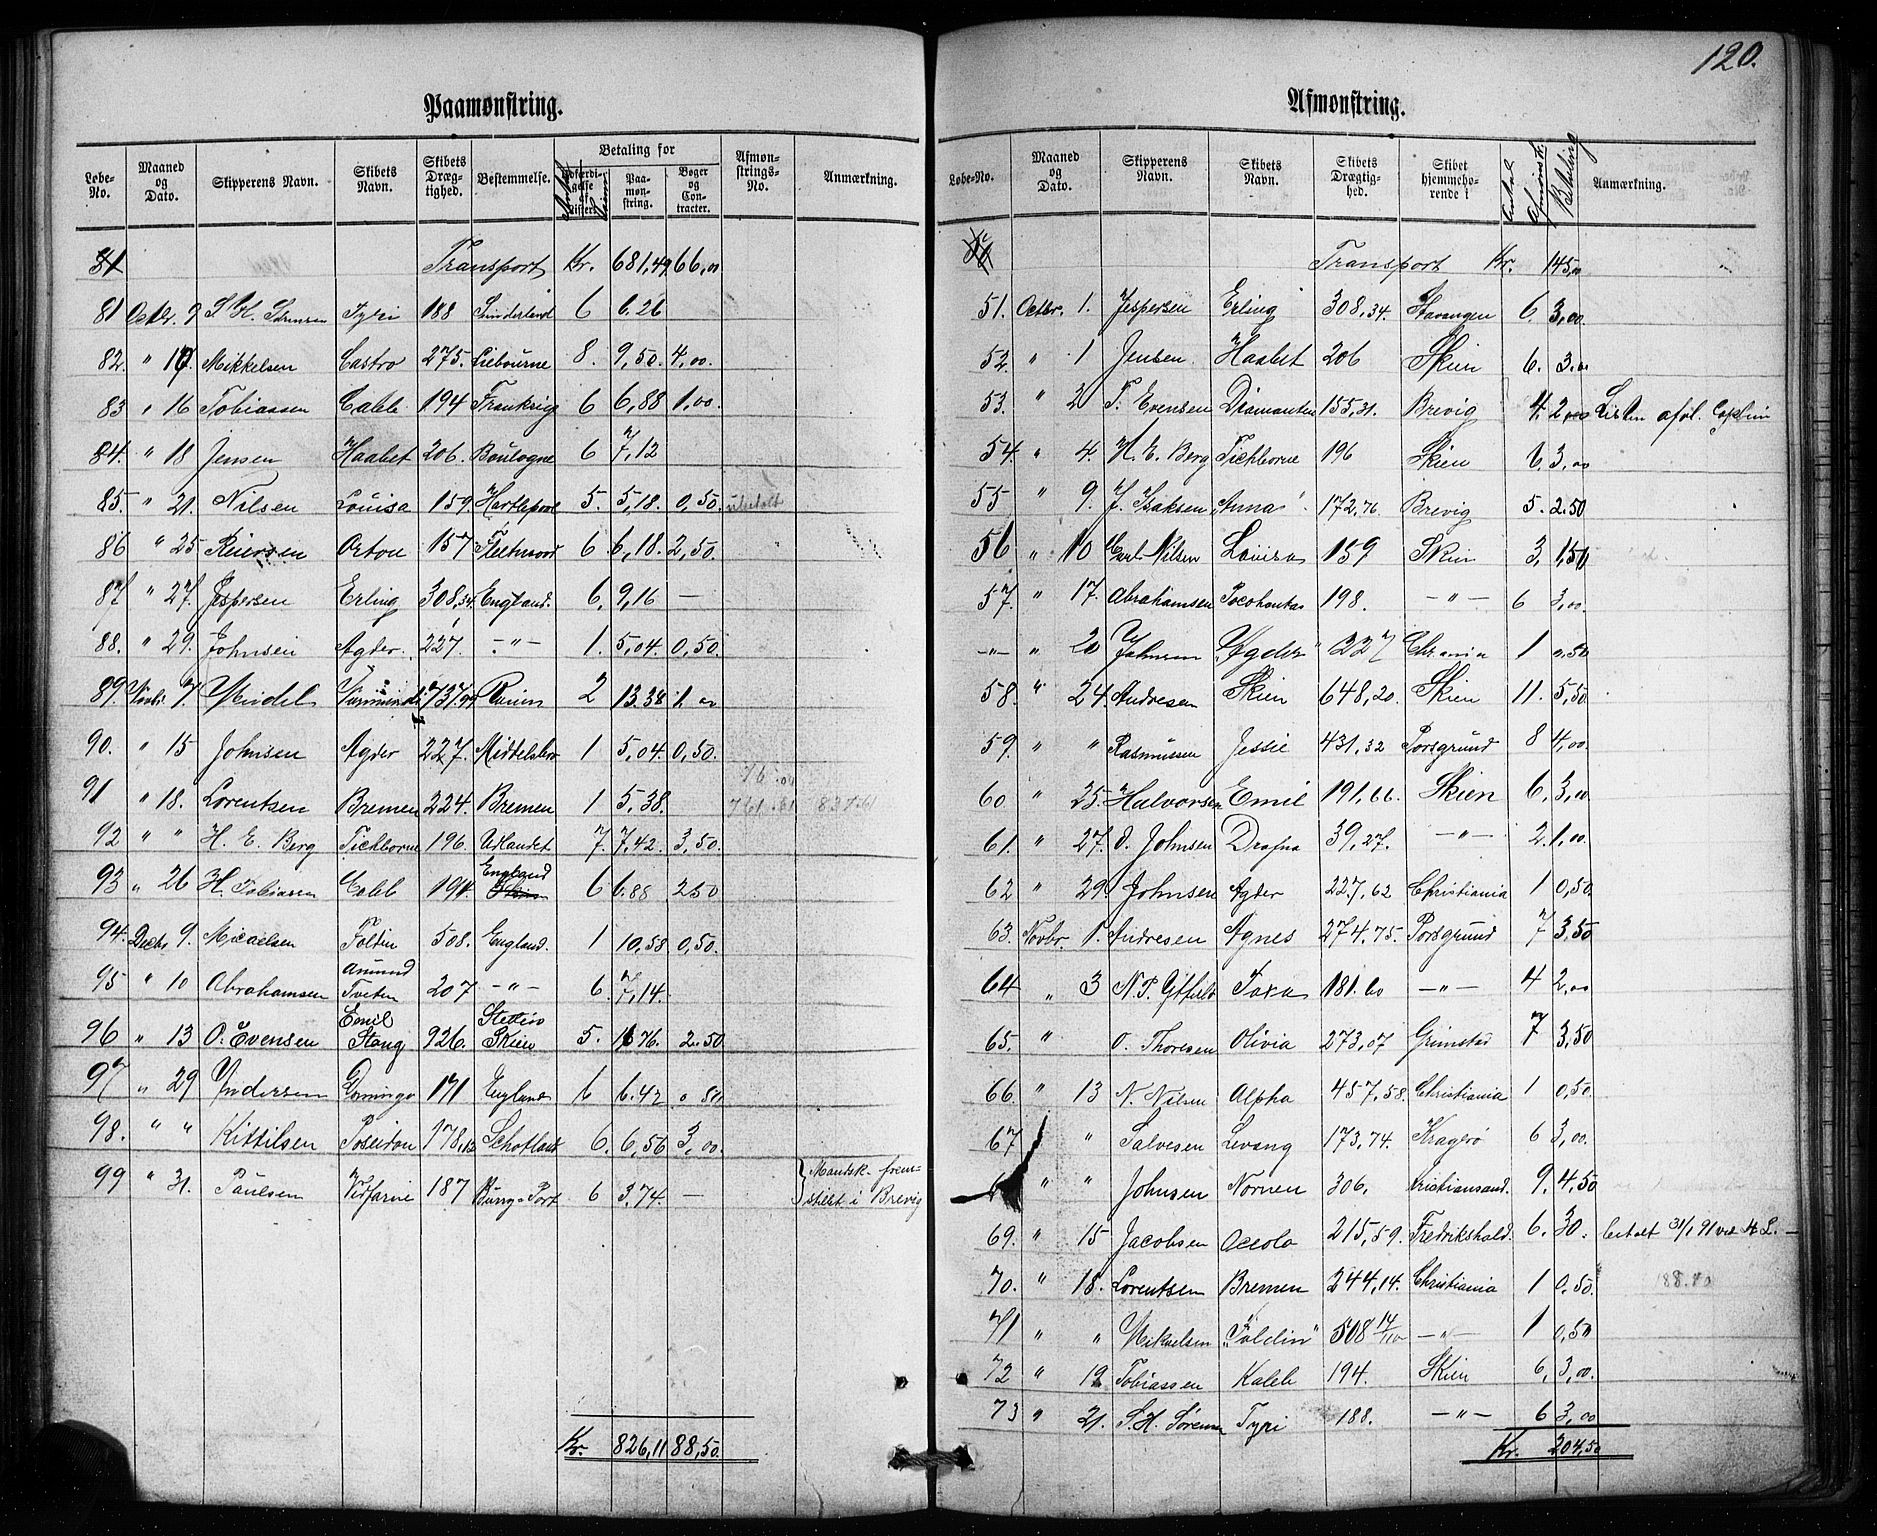 120.
Paamønstring.
Løbe-No. Maaned og Dato. Skipperens Navn. Skibets Navn. Skibets Drægtighed. Bestemmelse. Betaling for Paamønstring. Bøger og Contracter. Afmønstrings-No. Anmærkning.
81 Transport Kr. 681,49 66,00
81 Octbr. 9 S. H. Sørensen Tyri 188 Sunderland 6 6.26
82. " 10 Mikkelsen Castro 275. Liebourne 8. 9,50. 4,00.
83 " 16 Tobiassen Caleb 194 Frankrig 6 6,88 1,00.
84. " 18 Jensen Haabet 206. Boulogne 6 7,12
85. " 21. Nilsen Louisa 159. Hartlepool 5. 5,18. 0,50. ubetalt
86 " 25 Reiersen Orton 157 Fleetwood 6 6,18. 2,50.
87 " 27. Jespersen Erling 308,34. England. 6. 9,16 —
88. " 29. Johnsen Agder. 227. - " - 1. 5,04. 0,50.
89. Novbr. 7. Meidel 737,94 2 13.38 1.00
90. " 15 Johnsen Agder 227. Middelsbro 1 5,04. 0,50.
91 " 18. Lorentsen Bremen 224. Bremen 1 5,38.
761.81 837.61
92 " " H. E. Berg Tichborne 196. Udlandet 7. 7,42. 3,50.
93 " 26 H. Tobiassen Caleb 194. England 6 6.88 2.50
94. Decbr. 9. Micaelsen Foldin 508. England. 1 10,58. 0,50.
95 " 10 Abrahamsen Amund Tveten 207 - " - 6. 7,14.
96 " 13 O. Evensen Emil Stang 926. Stettin Skien 5. 76. 2.50
97 " 29 Andersen Domingo 171 England 6 6.42 0.50
98. " " Kittilsen Poseidon 178, Schotland 6. 6,56 3,00.
99 " 31. Paulsen Vidfarne 187 Burg-Port 6 3,74. — Mandsk. frem-
stillet i Brevig
Kr. 826,11 88,50.
Afmønstring.
Løbe-No. Maaned og Dato. Skipperens Navn. Skibets Navn. Skibets Drægtighed. Skibet hjemmehørende i Antal Afmønstr. Betaling Anmærkning.
Transport Kr. 145,00
51. Octbr. 1. Jespersen Erling 308,34. Stavangen 6. 3,00.
52. " 1 Jensen. Haabet 206 Skien 6. 3.00
53. " 2 T. Evensen Diamanten 155,31. Brevig 4. 2,00 Listen afvl. Captein
54. " 4. H. E. Berg Tichborne 196 Skien 6 3,00
55 " 9. J. Isaksen "Anna" 172,76 Brevig 5. 2.50
56 " 10 Carl Nilsen Louisa 159 Skien 3, 1,50
57. " 17. Abrahamsen Pocohontas 198. - " - 6 3,00.
- " - " 20 Johnsen "Agder" 227 Chrania 1 0,50
58. " 24 Andresen Skien 648,20. Skien 11. 5,50.
59. " " Rasmussen Jessie 431,32 Porsgrund 8 4,00.
60 " 25. Halvorsen Emil 191,66. Skien 6, 3,00
61. " 27. O. Johnsen Drafna 39,27. - " - 2. 1,00.
62 " 29. Johnsen Agder 227,62 Christiania 1 0,50.
63. Novbr. 1. Andresen Agnes 274,75. Porsgrund 7 3,50
64 " 3 N. P. Taxa 181.60 - " - 4 2,00
65. " O. Thoresen Olivia 273,07 Grimstad 7 3,50
66. " 13 N. Nilsen Alpha 457,58. Christiania 1 0,50.
67 " Salvesen Levang 173,74. Kragerø 6 3,00.
" " Johnsen Nornen 306. Kristiansand. 9. 4,50
69. " 15 Jacobsen Aceolo 215,59. Fredrikshald. 6. 30. betalt 31/1 91 ved H L. —
70. " 18. Lorentsen Bremen 244,14. Christiania 1 0,50. 188.70
71 " " Mikaelsen "Foldin" 508 14/100 - " - 1 0,50
72 " 19 Tobiassen Kaleb 194. Skien 6, 3,00.
73 " 21. S. H. Sørensen Tyri 188. - " - 6 3,00
Kr. 204,50